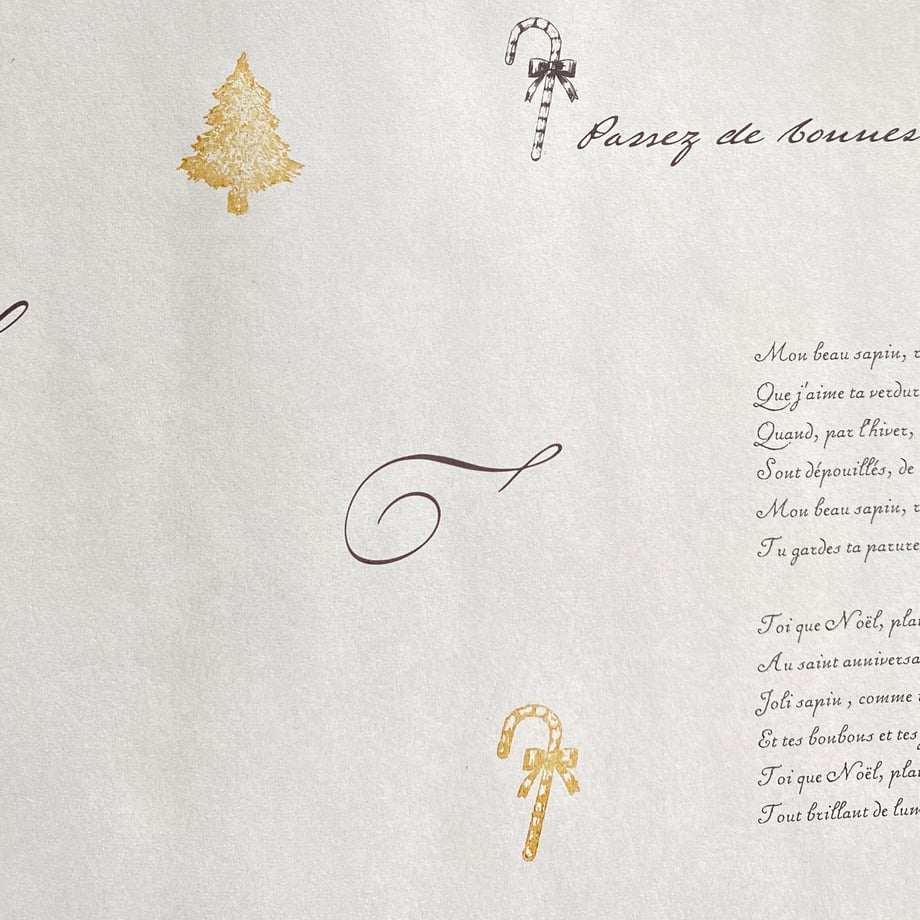 Passez de bonnes
Mon beau sapin,
Que j'aime ta verdur
Quand, par l'hiver,
Sont dépouillés, de
Mon beau sapin,
Tu gardes ta parure
Toi que Noël, plan
Au saint anniversa
Joli sapin , comme
Et tes bonbons et tes
Toi que Noël, plan
Tout brillant de lum